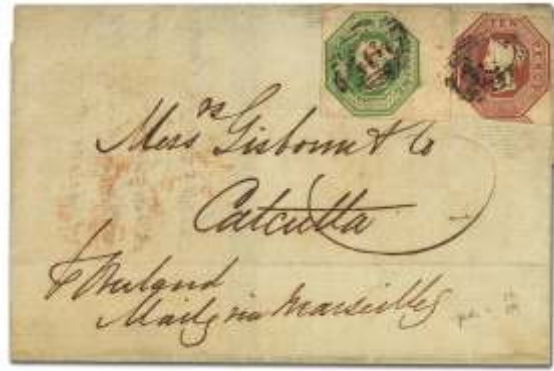 TEN
PENCE
Messrs Gisborne & Co
Calcutta
Overland
Mails via Marseilles